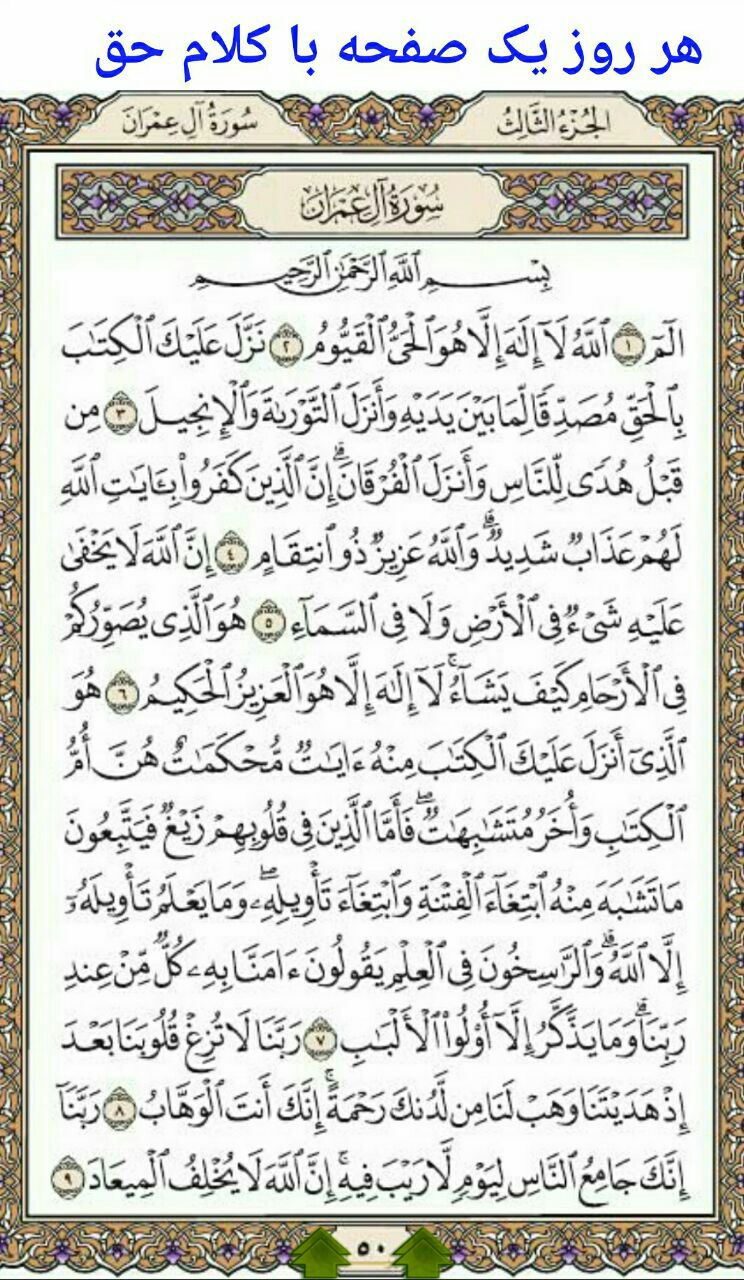 هر روز یک صفحه با کلام حق
الجُزْءُ الثَّالِثُ
سُورَةُ آلِ عِمْرَانَ
سُورَةُ آلِ عِمْرَان
بِسْمِ ٱللَّهِ ٱلرَّحْمَٰنِ ٱلرَّحِيمِ
الٓمٓ ١ ٱللَّهُ لَآ إِلَٰهَ إِلَّا هُوَ ٱلْحَىُّ ٱلْقَيُّومُ ٢ نَزَّلَ عَلَيْكَ ٱلْكِتَٰبَ
بِٱلْحَقِّ مُصَدِّقًا لِّمَا بَيْنَ يَدَيْهِ وَأَنزَلَ ٱلتَّوْرَىٰةَ وَٱلْإِنجِيلَ ٣ مِن
قَبْلُ هُدًى لِّلنَّاسِ وَأَنزَلَ ٱلْفُرْقَانَ ۗ إِنَّ ٱلَّذِينَ كَفَرُوا۟ بِـَٔايَٰتِ ٱللَّهِ
لَهُمْ عَذَابٌ شَدِيدٌ ۗ وَٱللَّهُ عَزِيزٌ ذُو ٱنتِقَامٍ ٤ إِنَّ ٱللَّهَ لَا يَخْفَىٰ
عَلَيْهِ شَىْءٌ فِى ٱلْأَرْضِ وَلَا فِى ٱلسَّمَآءِ ٥ هُوَ ٱلَّذِى يُصَوِّرُكُمْ
فِى ٱلْأَرْحَامِ كَيْفَ يَشَآءُ ۚ لَآ إِلَٰهَ إِلَّا هُوَ ٱلْعَزِيزُ ٱلْحَكِيمُ ٦ هُوَ
ٱلَّذِىٓ أَنزَلَ عَلَيْكَ ٱلْكِتَٰبَ مِنْهُ ءَايَٰتٌ مُّحْكَمَٰتٌ هُنَّ أُمُّ
ٱلْكِتَٰبِ وَأُخَرُ مُتَشَٰبِهَٰتٌ ۖ فَأَمَّا ٱلَّذِينَ فِى قُلُوبِهِمْ زَيْغٌ فَيَتَّبِعُونَ
مَا تَشَٰبَهَ مِنْهُ ٱبْتِغَآءَ ٱلْفِتْنَةِ وَٱبْتِغَآءَ تَأْوِيلِهِۦ ۖ وَمَا يَعْلَمُ تَأْوِيلَهُۥٓ
إِلَّا ٱللَّهُ ۗ وَٱلرَّٰسِخُونَ فِى ٱلْعِلْمِ يَقُولُونَ ءَامَنَّا بِهِۦ كُلٌّ مِّنْ عِندِ
رَبِّنَا ۗ وَمَا يَذَّكَّرُ إِلَّآ أُو۟لُوا۟ ٱلْأَلْبَٰبِ ٧ رَبَّنَا لَا تُزِغْ قُلُوبَنَا بَعْدَ
إِذْ هَدَيْتَنَا وَهَبْ لَنَا مِن لَّدُنكَ رَحْمَةً ۚ إِنَّكَ أَنتَ ٱلْوَهَّابُ ٨ رَبَّنَآ
إِنَّكَ جَامِعُ ٱلنَّاسِ لِيَوْمٍ لَّا رَيْبَ فِيهِ ۚ إِنَّ ٱللَّهَ لَا يُخْلِفُ ٱلْمِيعَادَ ٩
٥٠